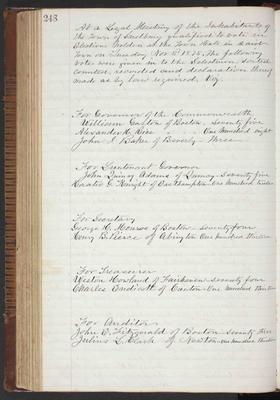 248
At a Legal Meeting of the Inhabitants of
the Town of Sudbury qualified to vote in
Elections holden at the Town Hall in said
Town on Tuesday Nov 2d 1875. The following
votes were given in to the Selectmen sorted
counted, recorded and declaration thereof
made as by law required, Viz.
For Governor of the Commonwealth
William Gaston of Boston, Seventy five
Alexander H. Rice " " One Hundred eight
John I Baker of Beverly Three
For Lieutenant Governor
John Quincy Adams of Quincy Seventy five
Horatio G. Knight of Easthampton One Hundred twelve
For Secretary
George H. Monroe of Boston Seventy four
Henry B. Peirce of Abington One Hundred thirteen
For Treasurer
Weston Howland of Fairhaven Seventy four
Charles Endicott of Canton One Hundred thirteen
For Auditor
John E. Fitzgerald of Boston Seventy five
Julius L. Clark of Newton One Hundred thirteen